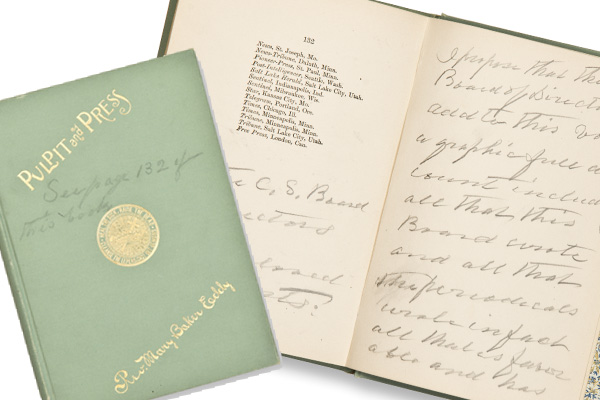 PULPIT and PRESS
See page 132 of
this book
Rev. Mary Baker Eddy
132
News, St. Joseph, Mo.
News-Tribune, Duluth, Minn.
Pioneer-Press, St. Paul, Minn.
Post-Intelligencer, Seattle, Wash.
Salt Lake Herald, Salt Lake City, Utah.
Sentinel, Indianapolis, Ind.
Sentinel, Milwaukee, Wis.
Star, Kansas City, Mo.
Telegram, Portland, Ore.
Times, Chicago, Ill.
Times, Minneapolis, Minn.
Tribune, Minneapolis, Minn.
Tribune, Salt Lake City, Utah.
Free Press, London, Can.
C. S. Board
I propose that the
Board of Direct
add to this
a graphic full
count includ
all that this
Board wrote
and all that
the periodicals
wrote in fact
all that is favor
able and has